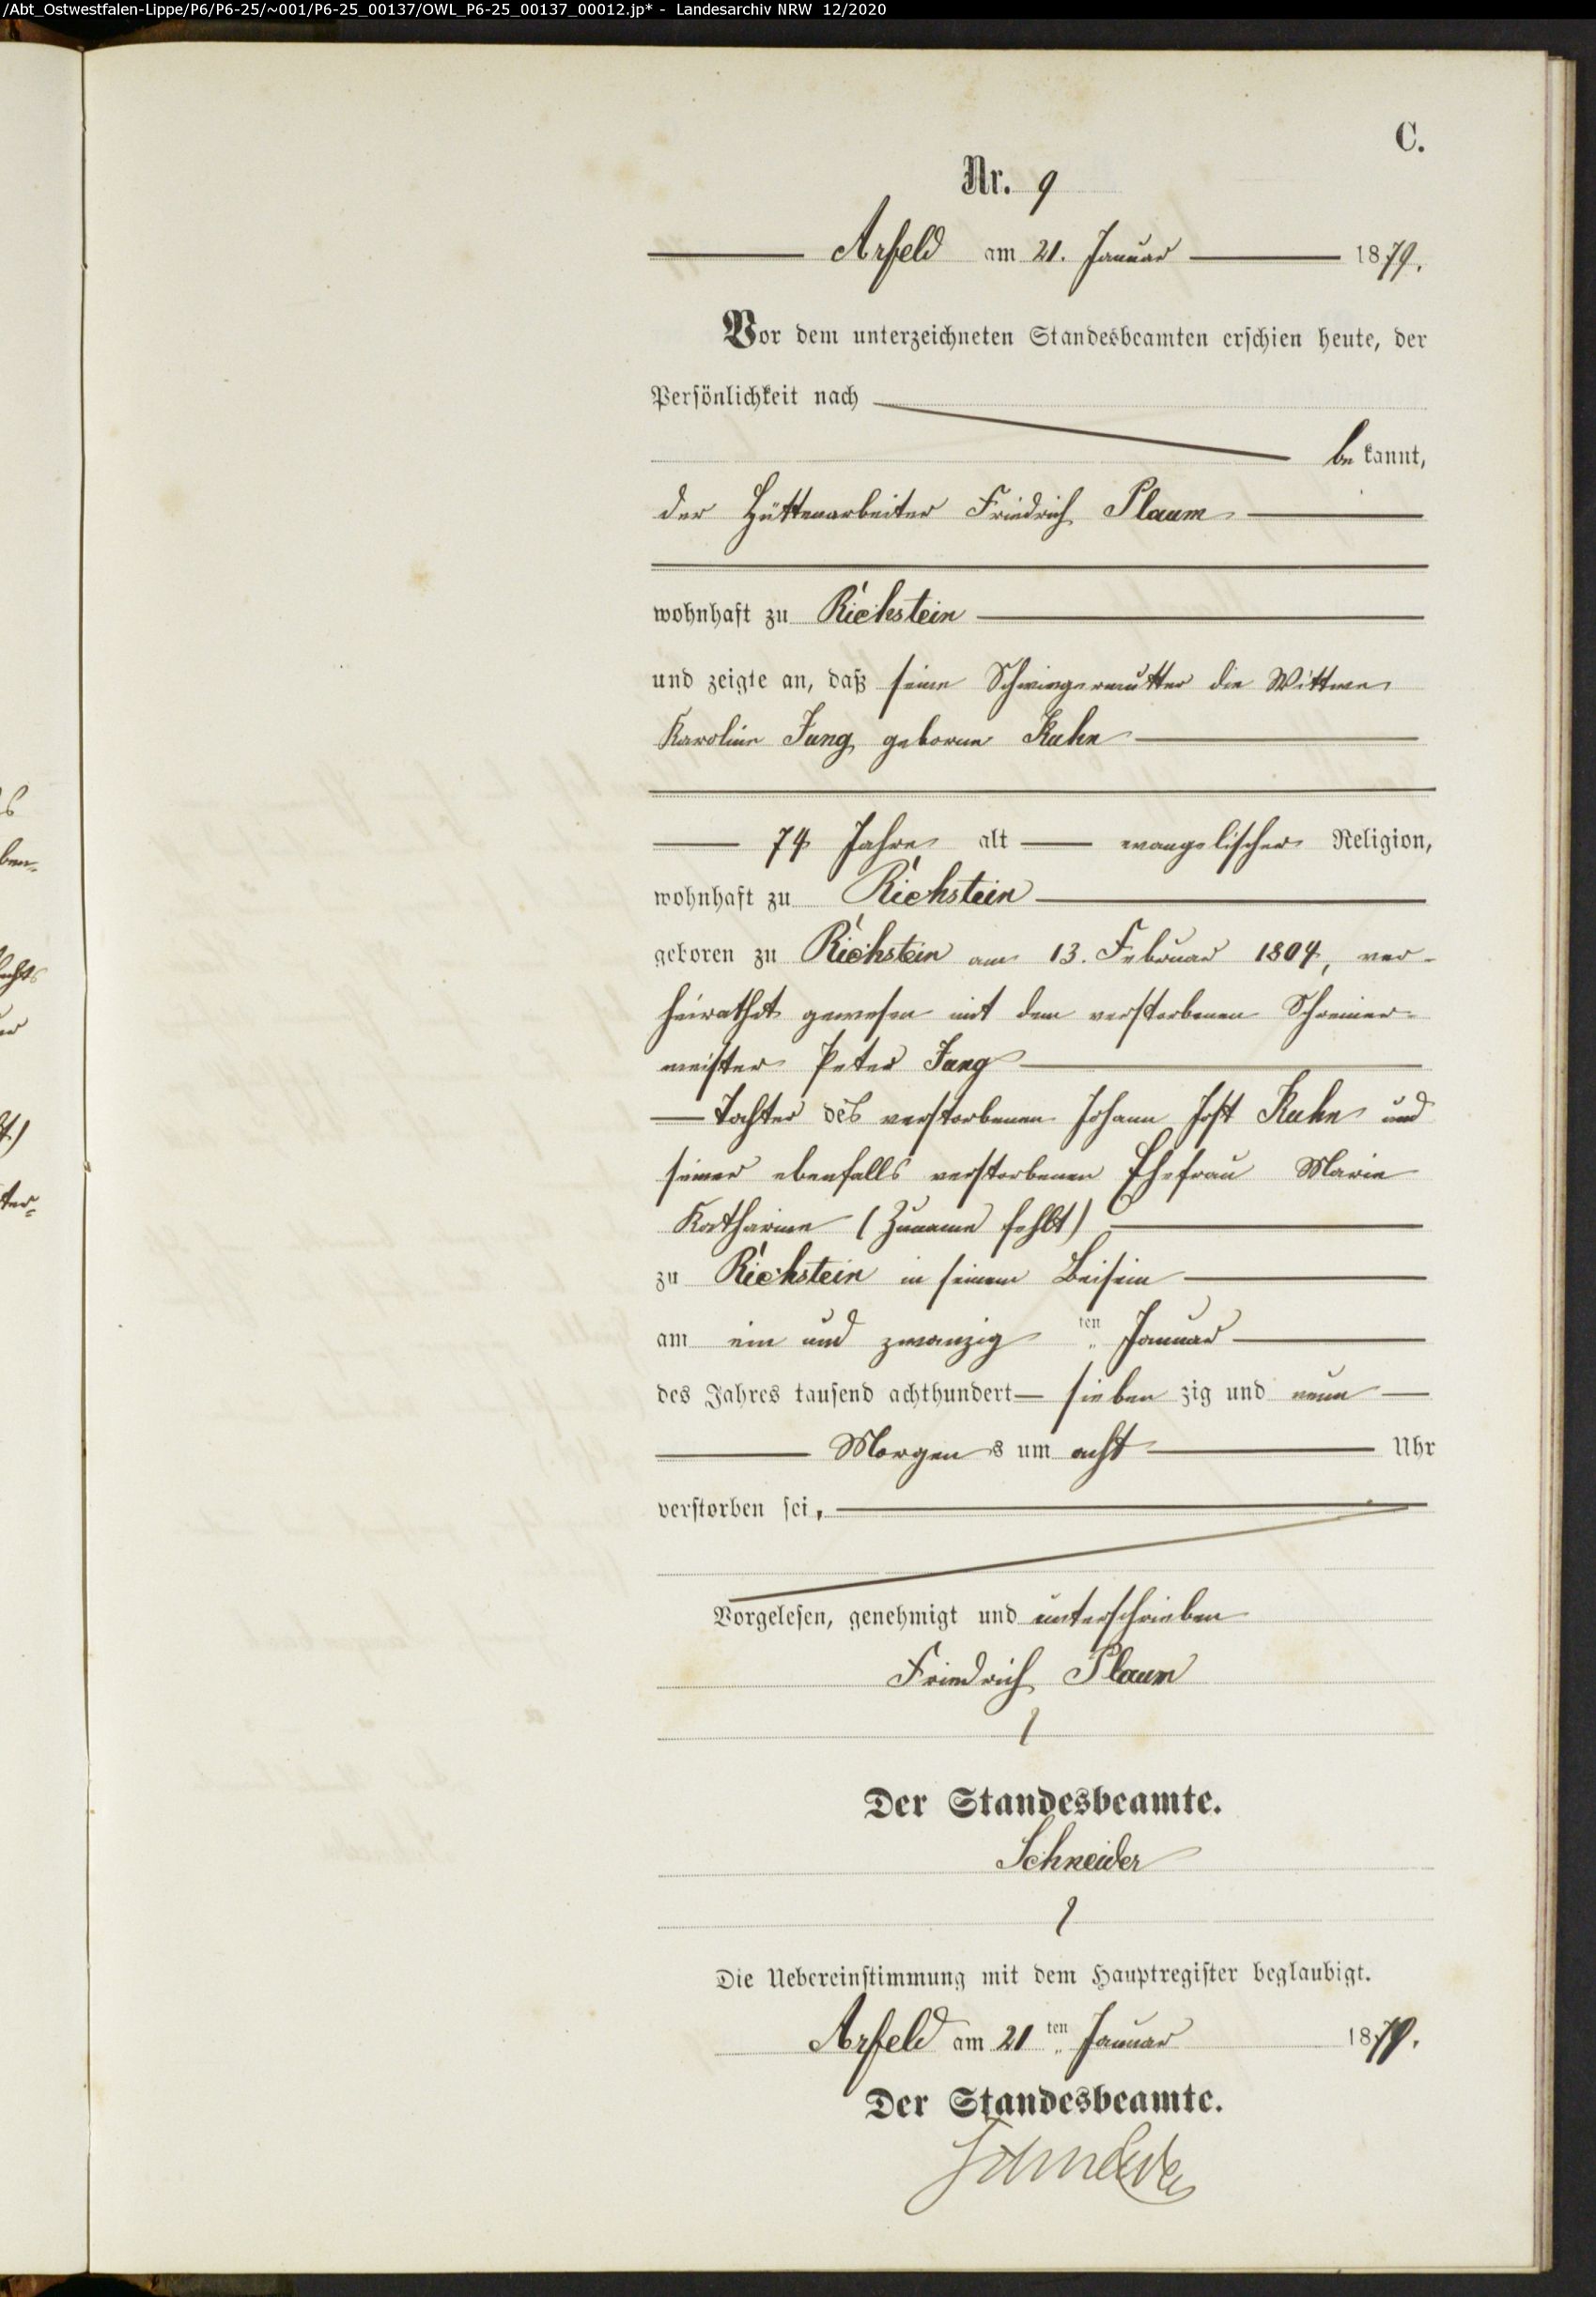 /Abt_Ostwestfalen-Lippe/P6/P6-25/~001/P6-25_00137/OWL_P6-25_00137_00012.jp* - Landesarchiv NRW 12/2020
C.
Nr. 9
Arfeld am 21. Januar 1879.
Vor dem unterzeichneten Standesbeamten erschien heute, der
Persönlichkeit nach
bekannt,
der Hüttenarbeiter Friedrich Plaum
wohnhaft zu Richstein
und zeigte an, daß seine Schwiegermutter die Wittwe
Karoline Jung geborne Kuhn
74 Jahre alt evangelischer Religion,
wohnhaft zu Richstein
geboren zu Richstein am 13. Februar 1804, ver-
heirathet gewesen mit dem verstorbenen Schreiner-
meister Peter Jung
Tochter des verstorbenen Johann Jost Kuhn und
seiner ebenfalls verstorbenen Ehefrau Marie
Katharine (Zuname fehlt)
zu Richstein in seinem Beisein
am ein und zwanzig ten Januar
des Jahres tausend achthundert sieben zig und neun
Morgens um acht Uhr
verstorben sei.
Vorgelesen, genehmigt und unterschrieben
Friedrich Plaum
Der Standesbeamte.
Schneider
Die Uebereinstimmung mit dem Hauptregister beglaubigt.
Arfeld am 21ten Januar 1879.
Der Standesbeamte.
Schneider